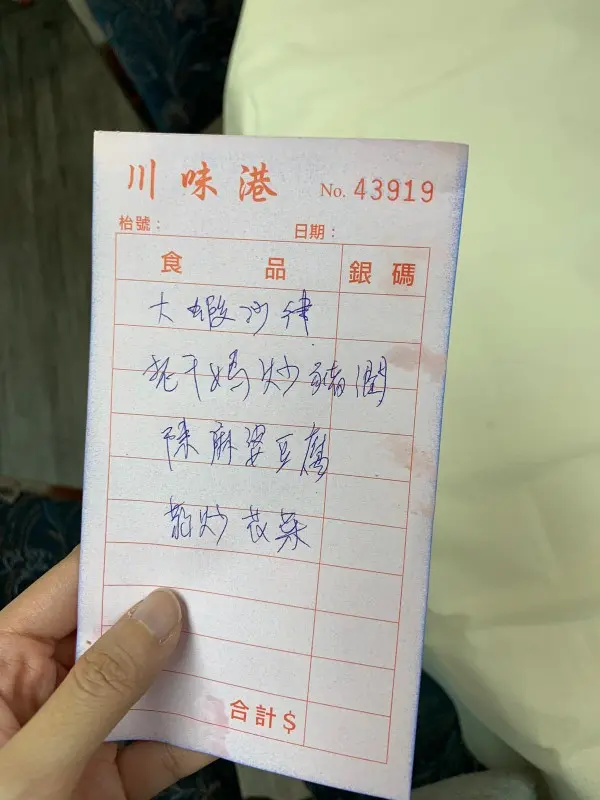 川味港 No. 43919
枱號： 日期：
食品 銀碼
大蝦沙律
老干媽炒豬潤
陳麻婆豆腐
炒
合計$